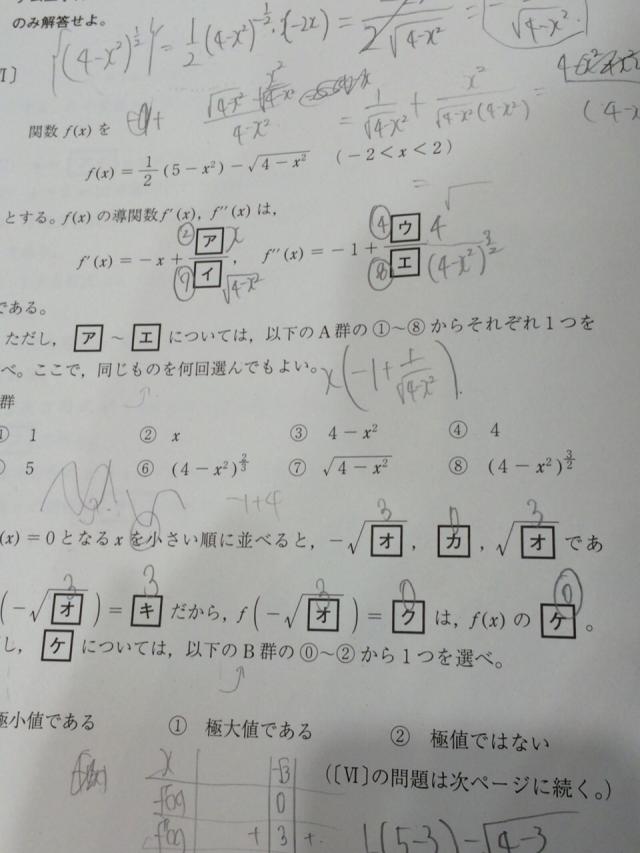 のみ解答せよ。
(4-x²)^{1/2} = 1/2 (4-x²)^{-1/2}·(-2x) =
√(4-x²)
2√(4-x²)
Ⅵ〕
= 1/√(4-x²) + x²/(√(4-x²)(4-x²)) =
4-x²
関数 f(x) を
f(x) = 1/2 (5-x²) - √(4-x²) (-2<x<2)
とする。f(x) の導関数 f'(x), f''(x) は,
f'(x) = -x + ア/イ, f''(x) = -1 + ウ/エ
② x
④ 4
√(4-x²)
⑧ (4-x²)^{3/2}
である。
ただし, ア ~ エ については, 以下のA群の①~⑧からそれぞれ1つを
べ。ここで, 同じものを何回選んでもよい。
x(-1+1/√(4-x²))
群
① 1 ② x ③ 4-x² ④ 4
5 ⑥ (4-x²)^{2/3} ⑦ √(4-x²) ⑧ (4-x²)^{3/2}
-1+4
3 0 3
(x) = 0 となる x を小さい順に並べると, -√オ, カ, √オ であ
3 3 3 0 0
(-√オ) = キ だから, f(-√オ) = ク は, f(x) の ケ 。
し, ケ については, 以下のB群の⓪~②から1つを選べ。
極小値である ① 極大値である ② 極値ではない
(〔Ⅵ〕の問題は次ページに続く。)
x -√3
0
+ 3 +
(5-3) - √(4-3)